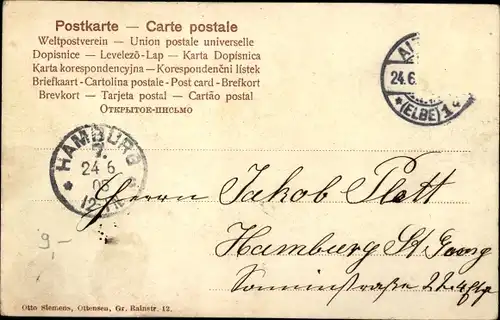 Postkarte — Carte postale
Weltpostverein — Union postale universelle
Dopisnice — Levelező-Lap — Karta Dopisnica
Karta korespondencyjna — Korespondenční lístek
Briefkaart - Cartolina postale - Post card - Brefkort
Brevkort — Tarjeta postal — Cartão postal
Открытое-письмо
24.6
*(ELBE)1
HAMBURG
7.
24 6
12-1N
Herrn Jakob Plett
Hamburg St. Georg
22
9,-
Otto Siemens, Ottensen, Gr. Rainstr. 12.